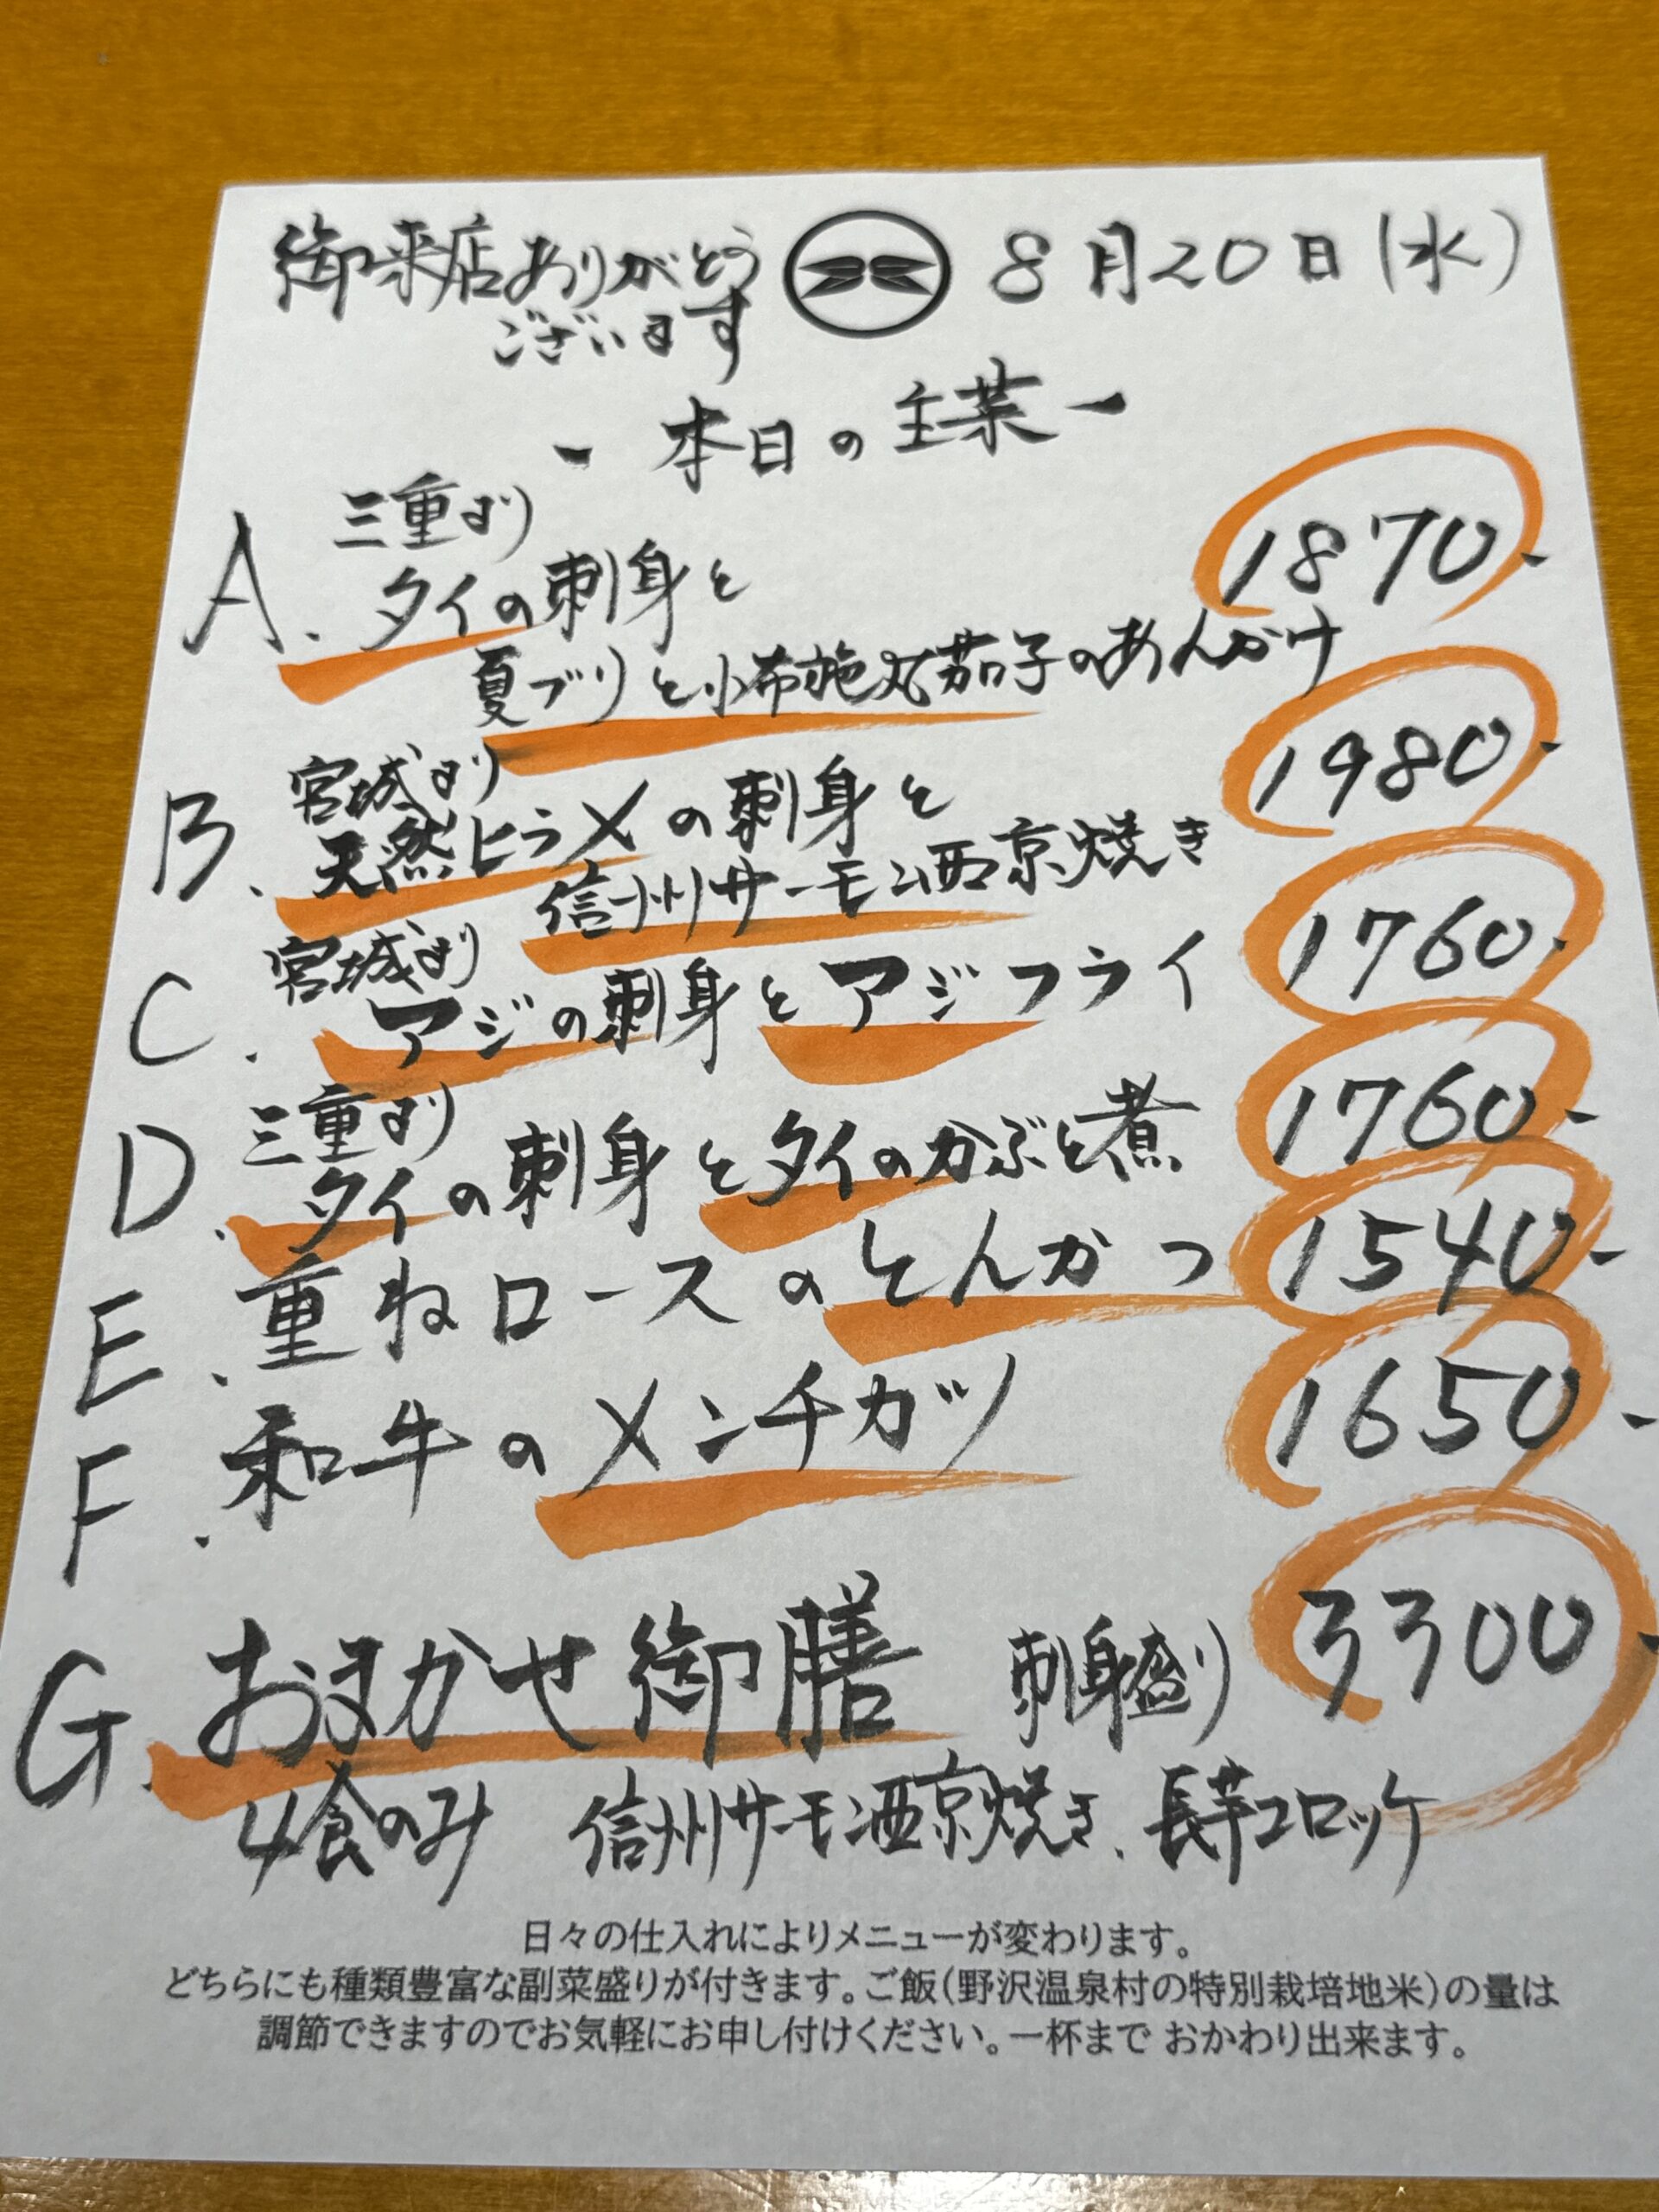 御来店ありがとう
ございます
8月20日(水)
- 本日の主菜 -
三重より
A. タイの刺身と 1870-
夏ブリと小布施丸茄子のあんかけ
宮城より
B. 天然ヒラメの刺身と 1980-
信州サーモン西京焼き
宮城より
C. アジの刺身とアジフライ 1760-
三重より
D. タイの刺身とタイのかぶと煮 1760-
E. 重ねロースのとんかつ 1540-
F. 和牛のメンチカツ 1650-
G. おまかせ御膳 刺身盛り 3300-
4食のみ 信州サーモン西京焼き、長芋コロッケ
日々の仕入れによりメニューが変わります。
どちらにも種類豊富な副菜盛りが付きます。ご飯(野沢温泉村の特別栽培地米)の量は
調節できますのでお気軽にお申し付けください。一杯まで おかわり出来ます。